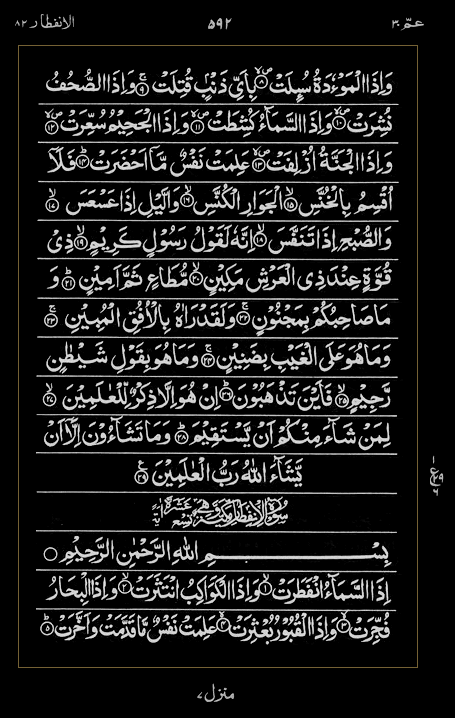 الانفطار ٨٢ ٥٩٢ عمّ ٣٠
وَاِذَا الْمَوْءٗدَةُ سُىِٕلَتْ ۪ۙ﴿۸﴾ بِاَيِّ ذَنْۢبٍ قُتِلَتْ ۚ﴿۹﴾ وَاِذَا الصُّحُفُ
نُشِرَتْ ۪ۙ﴿۱۰﴾ وَاِذَا السَّمَآءُ كُشِطَتْ ۪ۙ﴿۱۱﴾ وَاِذَا الْجَحِيْمُ سُعِّرَتْ ۪ۙ﴿۱۲﴾
وَاِذَا الْجَنَّةُ اُزْلِفَتْ ۪ۙ﴿۱۳﴾ عَلِمَتْ نَفْسٌ مَّاۤ اَحْضَرَتْ ؕ﴿۱۴﴾ فَلَاۤ
اُقْسِمُ بِالْخُنَّسِ ۙ﴿۱۵﴾ الْجَوَارِ الْكُنَّسِ ۙ﴿۱۶﴾ وَالَّيْلِ اِذَا عَسْعَسَ ۙ﴿۱۷﴾
وَالصُّبْحِ اِذَا تَنَفَّسَ ۙ﴿۱۸﴾ اِنَّهٗ لَقَوْلُ رَسُوْلٍ كَرِيْمٍ ۙ﴿۱۹﴾ ذِيْ
قُوَّةٍ عِنْدَ ذِي الْعَرْشِ مَكِيْنٍ ۙ﴿۲۰﴾ مُّطَاعٍ ثَمَّ اَمِيْنٍ ؕ﴿۲۱﴾ وَ
مَا صَاحِبُكُمْ بِمَجْنُوْنٍ ۚ﴿۲۲﴾ وَلَقَدْ رَاٰهُ بِالْاُفُقِ الْمُبِيْنِ ۚ﴿۲۳﴾
وَمَا هُوَ عَلَى الْغَيْبِ بِضَنِيْنٍ ۚ﴿۲۴﴾ وَمَا هُوَ بِقَوْلِ شَيْطٰنٍ
رَّجِيْمٍ ۙ﴿۲۵﴾ فَاَيْنَ تَذْهَبُوْنَ ؕ﴿۲۶﴾ اِنْ هُوَ اِلَّا ذِكْرٌ لِّلْعٰلَمِيْنَ ۙ﴿۲۷﴾
لِمَنْ شَآءَ مِنْكُمْ اَنْ يَّسْتَقِيْمَ ؕ﴿۲۸﴾ وَمَا تَشَآءُوْنَ اِلَّاۤ اَنْ
يَّشَآءَ اللّٰهُ رَبُّ الْعٰلَمِيْنَ ﴿۲۹﴾ ع
سُوْرَةُ الْاِنْفِطَارِ مَكِّيَّةٌ وَّهِيَ تِسْعَ عَشْرَةَ اٰيَةً
بِسْمِ اللّٰهِ الرَّحْمٰنِ الرَّحِيْمِ
اِذَا السَّمَآءُ انْفَطَرَتْ ۙ﴿۱﴾ وَاِذَا الْكَوَاكِبُ انْتَثَرَتْ ۙ﴿۲﴾ وَاِذَا الْبِحَارُ
فُجِّرَتْ ۙ﴿۳﴾ وَاِذَا الْقُبُوْرُ بُعْثِرَتْ ۙ﴿۴﴾ عَلِمَتْ نَفْسٌ مَّا قَدَّمَتْ وَاَخَّرَتْ ؕ﴿۵﴾
۱ ع ۲۹ ۶
منزل ٧